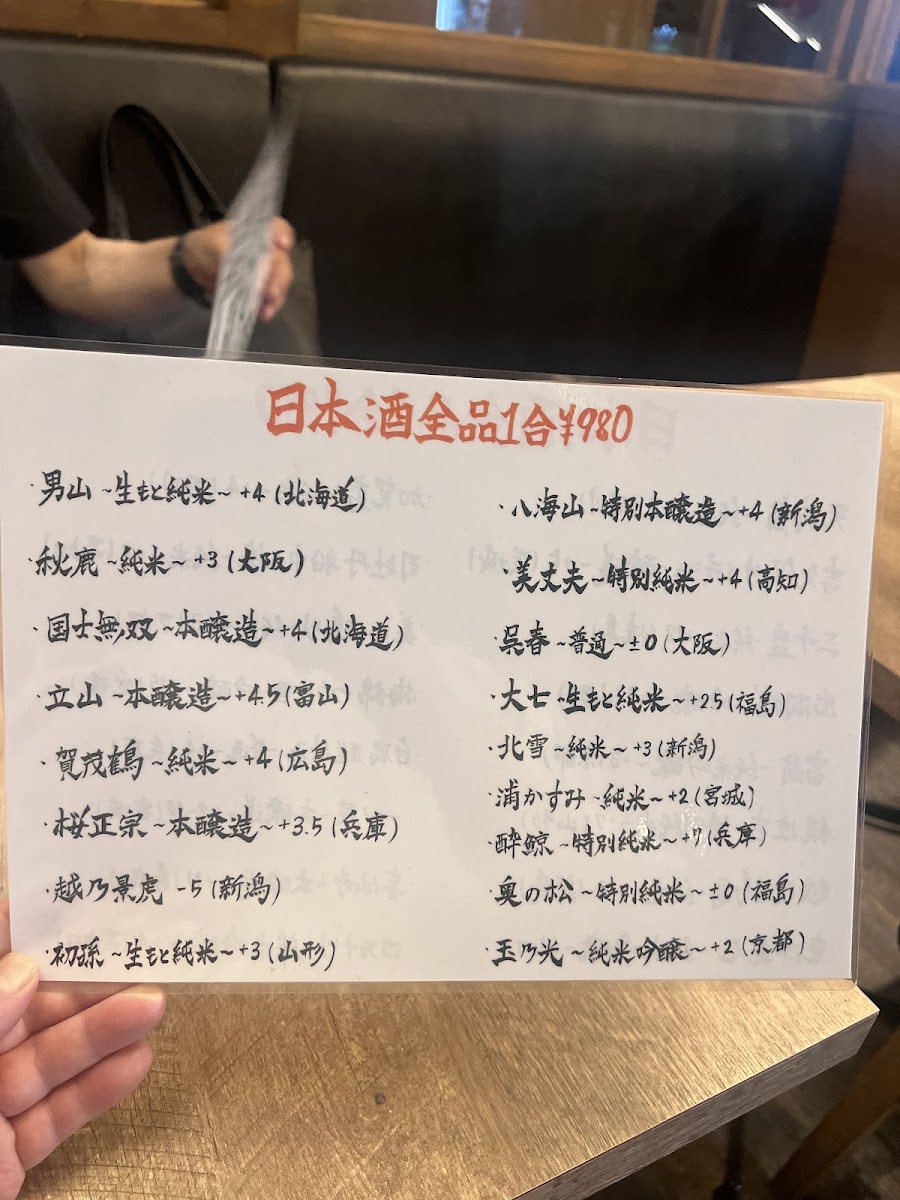 日本酒全品1合¥980
・男山 ~生もと純米~ +4 (北海道)
・秋鹿 ~純米~ +3 (大阪)
・国士無双 ~本醸造~ +4 (北海道)
・立山 ~本醸造~ +4.5 (富山)
・賀茂鶴 ~純米~ +4 (広島)
・桜正宗 ~本醸造~ +3.5 (兵庫)
・越乃景虎 -5 (新潟)
・初孫 ~生もと純米~ +3 (山形)
・八海山 ~特別本醸造~ +4 (新潟)
・美丈夫 ~特別純米~ +4 (高知)
・呉春 ~普通~ ±0 (大阪)
・大七 ~生もと純米~ +2.5 (福島)
・北雪 ~純米~ +3 (新潟)
・浦かすみ ~純米~ +2 (宮城)
・酔鯨 ~特別純米~ +7 (兵庫)
・奥の松 ~特別純米~ ±0 (福島)
・玉乃光 ~純米吟醸~ +2 (京都)